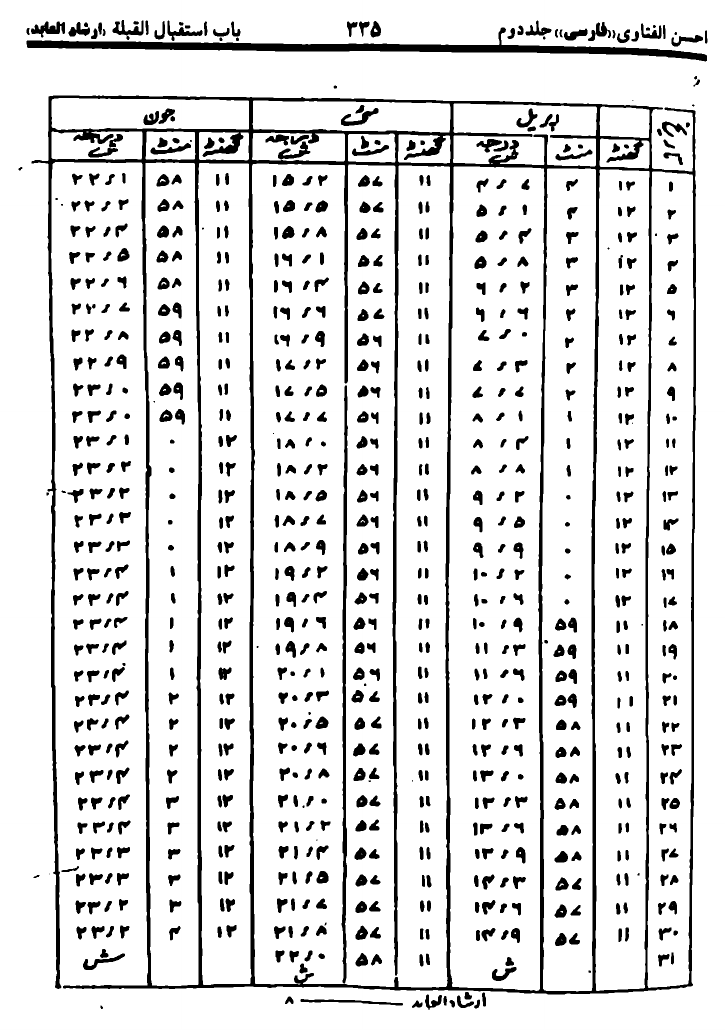 احسن الفتاوی ((فارسی)) جلد دوم ۳۳۵ باب استقبال القبلة (ارشاد العابد)
تاریخ اپریل مئی جون
گھنٹہ منٹ درجہ ش گھنٹہ منٹ درجہ ش گھنٹہ منٹ درجہ ش
۱ ۱۲ ۴ ۴ء۷ ۱۱ ۵۷ ۱۵ء۲ ۱۱ ۵۸ ۲۲ء۱
۲ ۱۲ ۴ ۵ء۱ ۱۱ ۵۷ ۱۵ء۵ ۱۱ ۵۸ ۲۲ء۲
۳ ۱۲ ۳ ۵ء۴ ۱۱ ۵۷ ۱۵ء۸ ۱۱ ۵۸ ۲۲ء۴
۴ ۱۲ ۳ ۵ء۸ ۱۱ ۵۷ ۱۶ء۱ ۱۱ ۵۸ ۲۲ء۵
۵ ۱۲ ۳ ۶ء۲ ۱۱ ۵۷ ۱۶ء۴ ۱۱ ۵۸ ۲۲ء۶
۶ ۱۲ ۲ ۶ء۶ ۱۱ ۵۷ ۱۶ء۶ ۱۱ ۵۹ ۲۲ء۷
۷ ۱۲ ۲ ۷ء۰ ۱۱ ۵۶ ۱۶ء۹ ۱۱ ۵۹ ۲۲ء۸
۸ ۱۲ ۲ ۷ء۳ ۱۱ ۵۶ ۱۷ء۲ ۱۱ ۵۹ ۲۲ء۹
۹ ۱۲ ۲ ۷ء۷ ۱۱ ۵۶ ۱۷ء۵ ۱۱ ۵۹ ۲۳ء۰
۱۰ ۱۲ ۱ ۸ء۱ ۱۱ ۵۶ ۱۷ء۷ ۱۱ ۵۹ ۲۳ء۰
۱۱ ۱۲ ۱ ۸ء۴ ۱۱ ۵۶ ۱۸ء۰ ۱۲ ۰ ۲۳ء۱
۱۲ ۱۲ ۱ ۸ء۸ ۱۱ ۵۶ ۱۸ء۲ ۱۲ ۰ ۲۳ء۲
۱۳ ۱۲ ۰ ۹ء۲ ۱۱ ۵۶ ۱۸ء۵ ۱۲ ۰ ۲۳ء۲
۱۴ ۱۲ ۰ ۹ء۵ ۱۱ ۵۶ ۱۸ء۷ ۱۲ ۰ ۲۳ء۳
۱۵ ۱۲ ۰ ۹ء۹ ۱۱ ۵۶ ۱۸ء۹ ۱۲ ۰ ۲۳ء۳
۱۶ ۱۲ ۰ ۱۰ء۲ ۱۱ ۵۶ ۱۹ء۲ ۱۲ ۱ ۲۳ء۴
۱۷ ۱۲ ۰ ۱۰ء۶ ۱۱ ۵۶ ۱۹ء۴ ۱۲ ۱ ۲۳ء۴
۱۸ ۱۱ ۵۹ ۱۰ء۹ ۱۱ ۵۶ ۱۹ء۶ ۱۲ ۱ ۲۳ء۴
۱۹ ۱۱ ۵۹ ۱۱ء۳ ۱۱ ۵۶ ۱۹ء۸ ۱۲ ۱ ۲۳ء۴
۲۰ ۱۱ ۵۹ ۱۱ء۶ ۱۱ ۵۶ ۲۰ء۱ ۱۲ ۱ ۲۳ء۴
۲۱ ۱۱ ۵۹ ۱۲ء۰ ۱۱ ۵۷ ۲۰ء۳ ۱۲ ۲ ۲۳ء۴
۲۲ ۱۱ ۵۸ ۱۲ء۳ ۱۱ ۵۷ ۲۰ء۵ ۱۲ ۲ ۲۳ء۴
۲۳ ۱۱ ۵۸ ۱۲ء۶ ۱۱ ۵۷ ۲۰ء۶ ۱۲ ۲ ۲۳ء۴
۲۴ ۱۱ ۵۸ ۱۳ء۰ ۱۱ ۵۷ ۲۰ء۸ ۱۲ ۲ ۲۳ء۴
۲۵ ۱۱ ۵۸ ۱۳ء۳ ۱۱ ۵۷ ۲۱ء۰ ۱۲ ۳ ۲۳ء۴
۲۶ ۱۱ ۵۸ ۱۳ء۶ ۱۱ ۵۷ ۲۱ء۲ ۱۲ ۳ ۲۳ء۴
۲۷ ۱۱ ۵۸ ۱۳ء۹ ۱۱ ۵۷ ۲۱ء۴ ۱۲ ۳ ۲۳ء۳
۲۸ ۱۱ ۵۷ ۱۴ء۳ ۱۱ ۵۷ ۲۱ء۵ ۱۲ ۳ ۲۳ء۳
۲۹ ۱۱ ۵۷ ۱۴ء۶ ۱۱ ۵۷ ۲۱ء۷ ۱۲ ۳ ۲۳ء۲
۳۰ ۱۱ ۵۷ ۱۴ء۹ ۱۱ ۵۷ ۲۱ء۸ ۱۲ ۴ ۲۳ء۲
۳۱ ش ۱۱ ۵۸ ۲۲ء۰ ش ش
ارشاد العابد ——— ۸